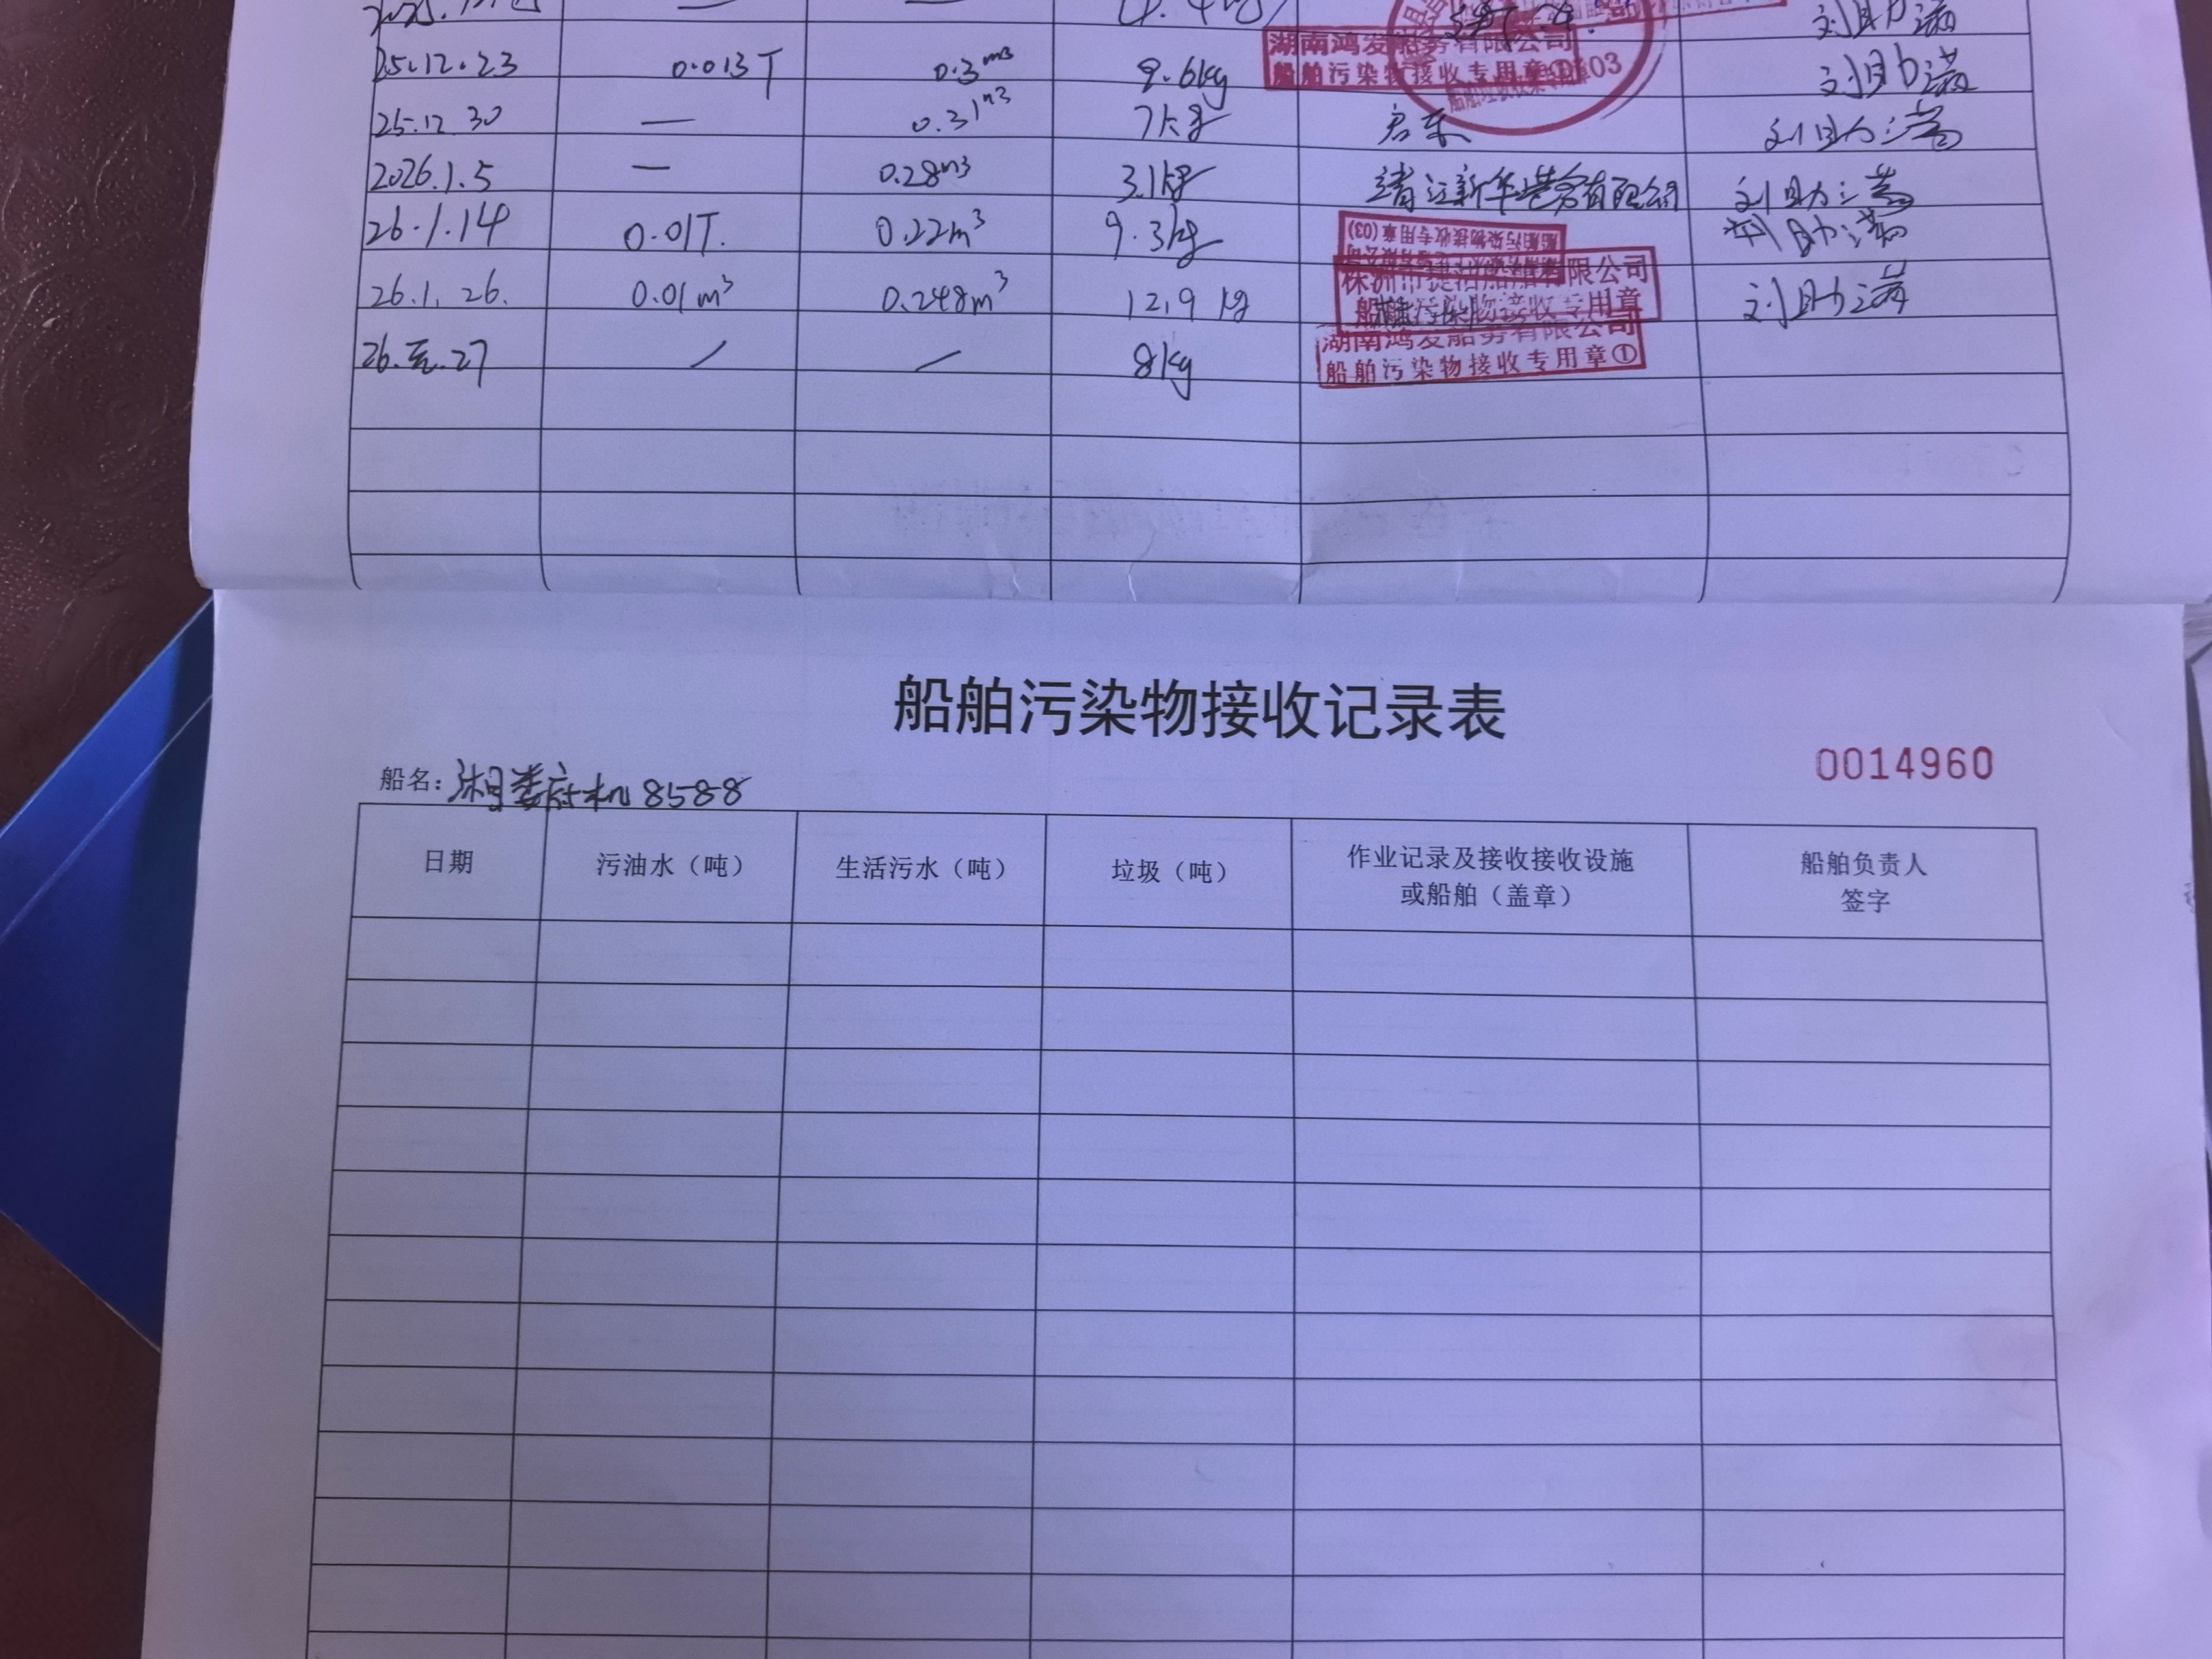 25.12.23 0.013T 0.3m3 9.6kg 湖南鸿发船务有限公司 刘助满
船舶污染物接收专用章① 03
25.12.30 — 0.31m3 7kg 启东 刘助满
2026.1.5 — 0.28m3 3.1kg 靖江新华港务有限公司 刘助满
26.1.14 0.01T. 0.22m3 9.3kg 船舶污染物接收专用章(03) 刘助满
26.1.26. 0.01m3 0.248m3 12.9kg 有限公司 刘助满
船舶污染物接收专用章
湖南鸿发船务有限公司
26.元.27 / / 8kg 船舶污染物接收专用章①
船舶污染物接收记录表
0014960
船名：湘娄府机8588
日期 污油水（吨） 生活污水（吨） 垃圾（吨） 作业记录及接收接收设施 船舶负责人
或船舶（盖章） 签字